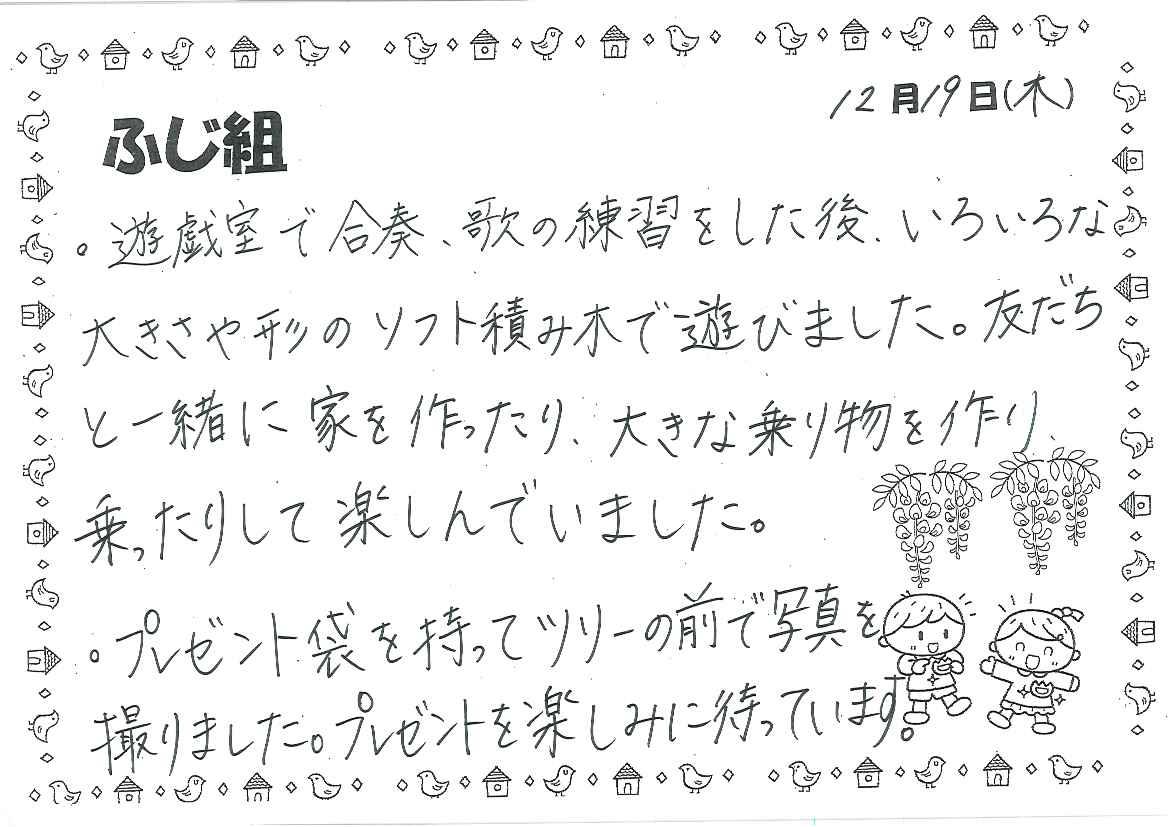 12月19日(木)
ふじ組
。遊戯室で合奏、歌の練習をした後、いろいろな
大きさや形のソフト積み木で遊びました。友だち
と一緒に家を作ったり、大きな乗り物を作り、
乗ったりして楽しんでいました。
。プレゼント袋を持ってツリーの前で写真を
撮りました。プレゼントを楽しみに待っています。